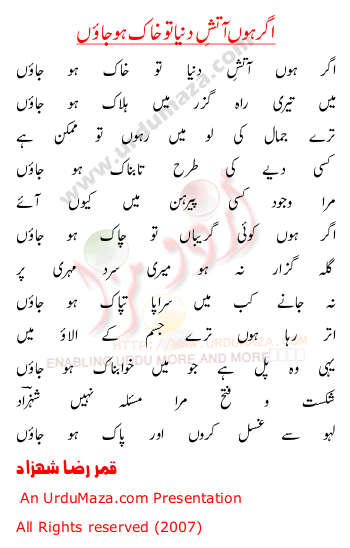 اگر ہوں آتشِ دنیا تو خاک ہو جاؤں
اگر ہوں آتشِ دنیا تو خاک ہو جاؤں
میں تیری راہ گزر میں ہلاک ہو جاؤں
ترے جمال کی لو میں رہوں تو ممکن ہے
کسی دیے کی طرح تابناک ہو جاؤں
مرا وجود کسی پیرہن میں کیوں آئے
اگر ہوں کوئی گریباں تو چاک ہو جاؤں
گلہ گزار نہ ہو میری سرد مہری پر
نہ جانے کب میں سراپا تپاک ہو جاؤں
اتر رہا ہوں ترے جسم کے الاؤ میں
یہی وہ پل ہے جو میں خوابناک ہو جاؤں
شکست و فتح مرا مسئلہ نہیں شہزاؔد
لہو سے غسل کروں اور پاک ہو جاؤں
قمر رضا شهزاد
An UrduMaza.com Presentation
All Rights reserved (2007)
www.urdumaza.com
اردو مزا
HTTP://WWW.URDUMAZA.COM
ENABLING URDU MORE AND MORE